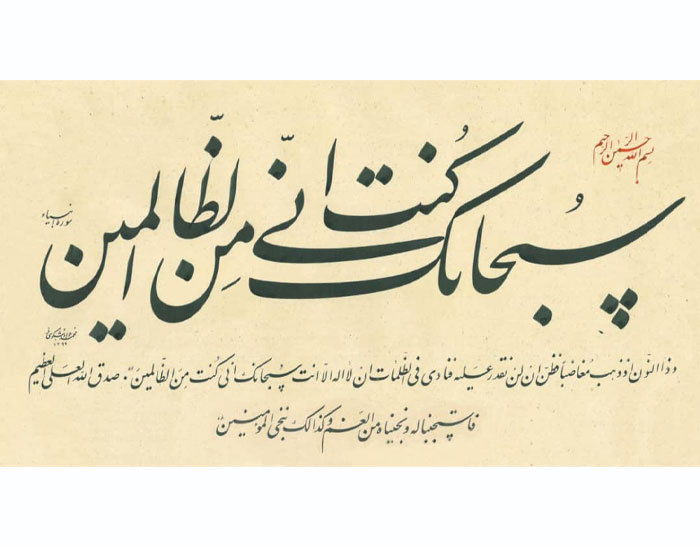 بسم الله الرحمن الرحيم
سُبحانک انّی کُنت مِن الظّالمین
سوره انبیاء
و ذا النّون اذ ذهب مُغاضباً فظن ان لن نقدر علیه فنادی فی الظّلمات ان لا اله الا انت سُبحانک انی کُنت مِن الظّالمین . صدق الله العلی العظیم
فاستجبنا له و نجیناه من الغم و کذالک ننجی المومنین